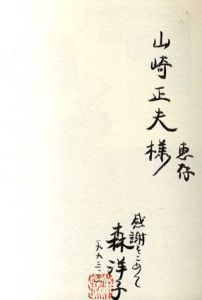 山崎正夫様
恵存
感謝をこめて
森洋子